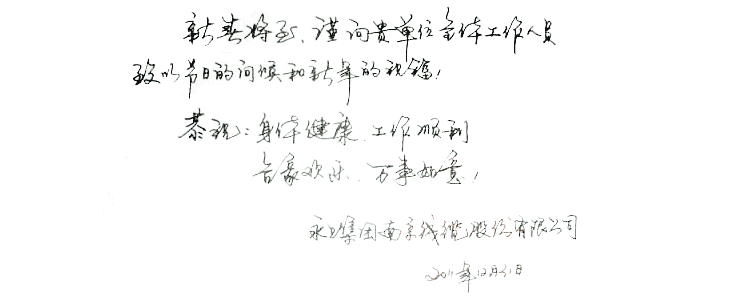 新春将至,谨向贵单位全体工作人员
致以节日的问候和新年的祝福!
恭祝:身体健康、工作顺利
合家欢乐、万事如意!
永上集团南京线缆股份有限公司
2011年12月21日